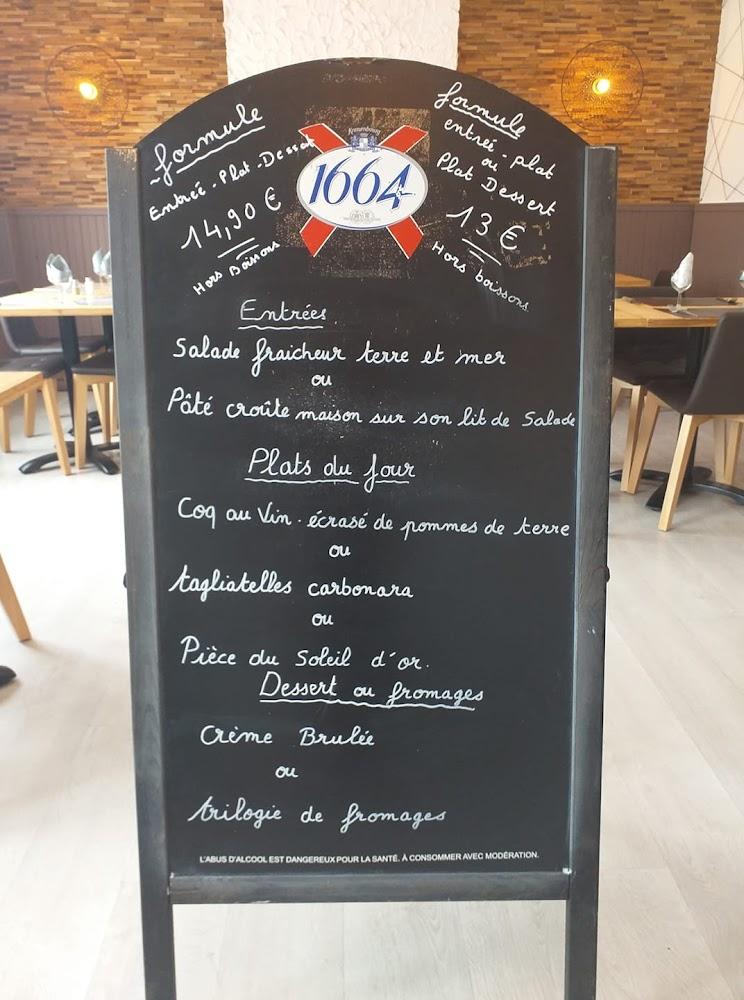 formule
Entrée - Plat - Dessert
14,90 €
Hors Boissons
Kronenbourg
1664
formule
entrée - plat
ou
Plat Dessert
13 €
Hors boissons
Entrées
Salade fraicheur terre et mer
ou
Pâté croûte maison sur son lit de Salade
Plats du Jour
Coq au Vin - écrasé de pommes de terre
ou
tagliatelles carbonara
ou
Pièce du Soleil d'or.
Dessert ou fromages
Crème Brulée
ou
trilogie de fromages
L'ABUS D'ALCOOL EST DANGEREUX POUR LA SANTÉ. À CONSOMMER AVEC MODÉRATION.